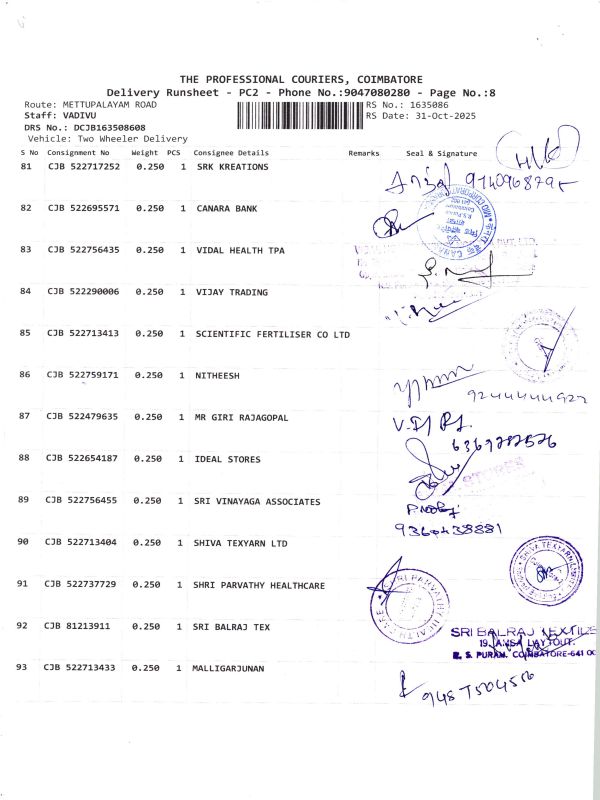 THE PROFESSIONAL COURIERS, COIMBATORE
Delivery Runsheet - PC2 - Phone No.:9047080280 - Page No.:8
Route: METTUPALAYAM ROAD RS No.: 1635086
Staff: VADIVU RS Date: 31-Oct-2025
DRS No.: DCJB163508608
Vehicle: Two Wheeler Delivery
S No Consignment No Weight PCS Consignee Details Remarks Seal & Signature
81 CJB 522717252 0.250 1 SRK KREATIONS
82 CJB 522695571 0.250 1 CANARA BANK
83 CJB 522756435 0.250 1 VIDAL HEALTH TPA
84 CJB 522290006 0.250 1 VIJAY TRADING
85 CJB 522713413 0.250 1 SCIENTIFIC FERTILISER CO LTD
86 CJB 522759171 0.250 1 NITHEESH
87 CJB 522479635 0.250 1 MR GIRI RAJAGOPAL
88 CJB 522654187 0.250 1 IDEAL STORES
89 CJB 522756455 0.250 1 SRI VINAYAGA ASSOCIATES
9360438881
90 CJB 522713404 0.250 1 SHIVA TEXYARN LTD
SHIVA TEXYARN
91 CJB 522737729 0.250 1 SHRI PARVATHY HEALTHCARE
92 CJB 81213911 0.250 1 SRI BALRAJ TEX
SRI BALRAJ TEXTILE
19, ANSA LAYOUT.
R. S. PURAM, COIMBATORE-641 00
93 CJB 522713433 0.250 1 MALLIGARJUNAN